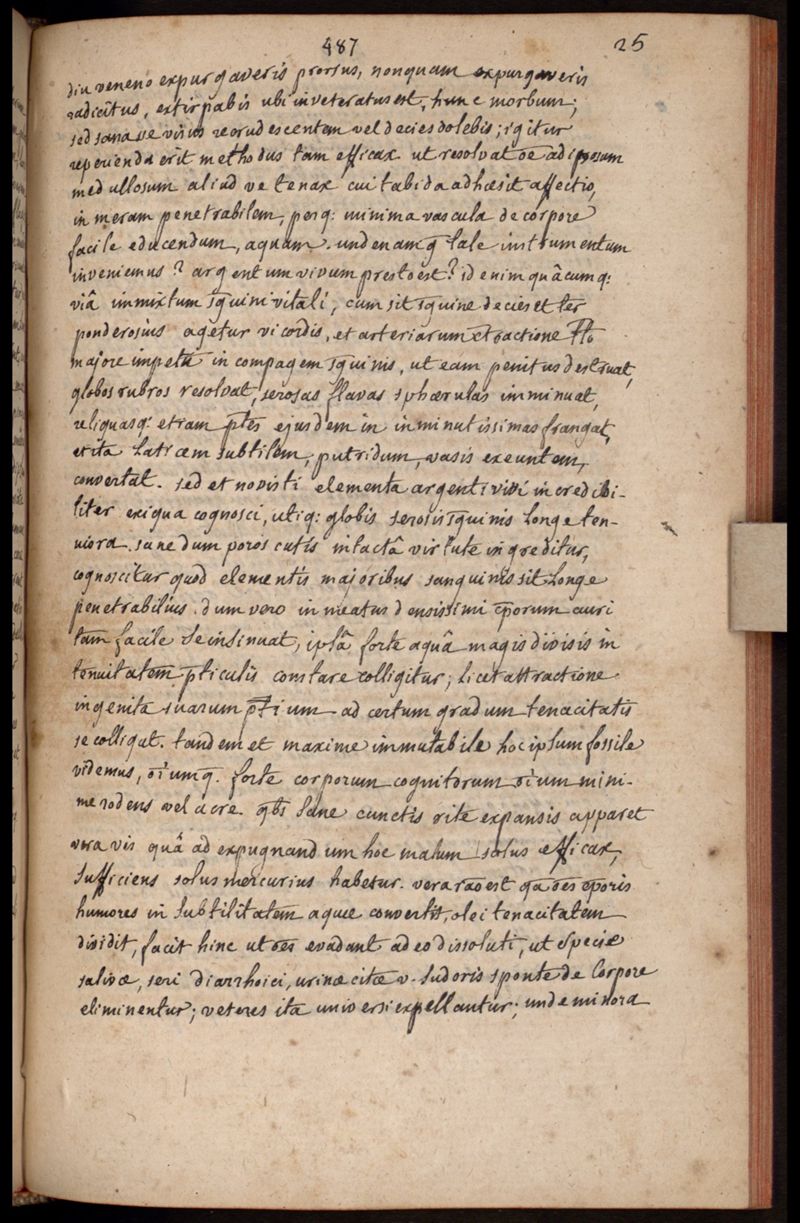 487 25
diu veneno expurgaveris prorsus, nonquam expurgaveris
radicitus, extirpabis ubi inveteratus est, hunc morbum;
sed sanare visus recrudescentem vel decies dolebis; igitur
reperienda erit methodus tam efficax ut resolvat oe adiposum
medullosum aliud ve tenax cui tabida adhæsit affectio,
in meram penetrabilem, perq: minima vascula de corpore
facile educendum, aquam. unde namq tale instrumentum
inveniemus? argentum vivum presto est? id enim quâcumq:
viâ immixtum sguini vitali, cum sit sguine decies et ter
ponderosius agetur vi cordis, et arteriarum contractione
majore impetu in compagem sguinis, ut eam penitus destruat,
globos rubros resolvat, serosas flavas sphærulas imminuat,
reliquasq: etiam ptes ejusdem in inminutissimas frangat,
et ita laticem subtilem, putridum, vasis exeuntem,
convertat. sed et novisti elementa argenti vivi incredibi-
liter exigua cognosci, utiq: globis serosis sguinis longe ten-
uiora. sane dum poros cutis intactâ virtute ingreditur,
cognoscitur quod elementis majoribus sanguinis sit longe
penetrabilius. dum vero in meatus densissimi cporum auri
tam facile se insinuat, ipsâ forte aquâ magis divisis in
tenuitatem pticulis constare colligitur; licet attractione
ingenita suarum ptium ad certum gradum tenacitatis
se colligat. tandem et maxime immutabile hoc ipsum fossile
videmus, oiumq. forte corporum cognitorum oium mini-
me rodens vel acre. qbs sane cunctis rite expansis apparet
vera vis quâ ad expugnandum hoc malum solus efficax,
sufficiens solus mercurius habetur. vera rao est qa oes cporis
humores in subtilitatem aquæ convertit, olei tenacitatem
dividit, facit hinc ut oes evadant adeo dissoluti, ut specie
salivæ, seri diarrhoici, urinæ citæ v. sudoris sponte de corpore
eliminentur; veteres ita universi expellantur; unde minora